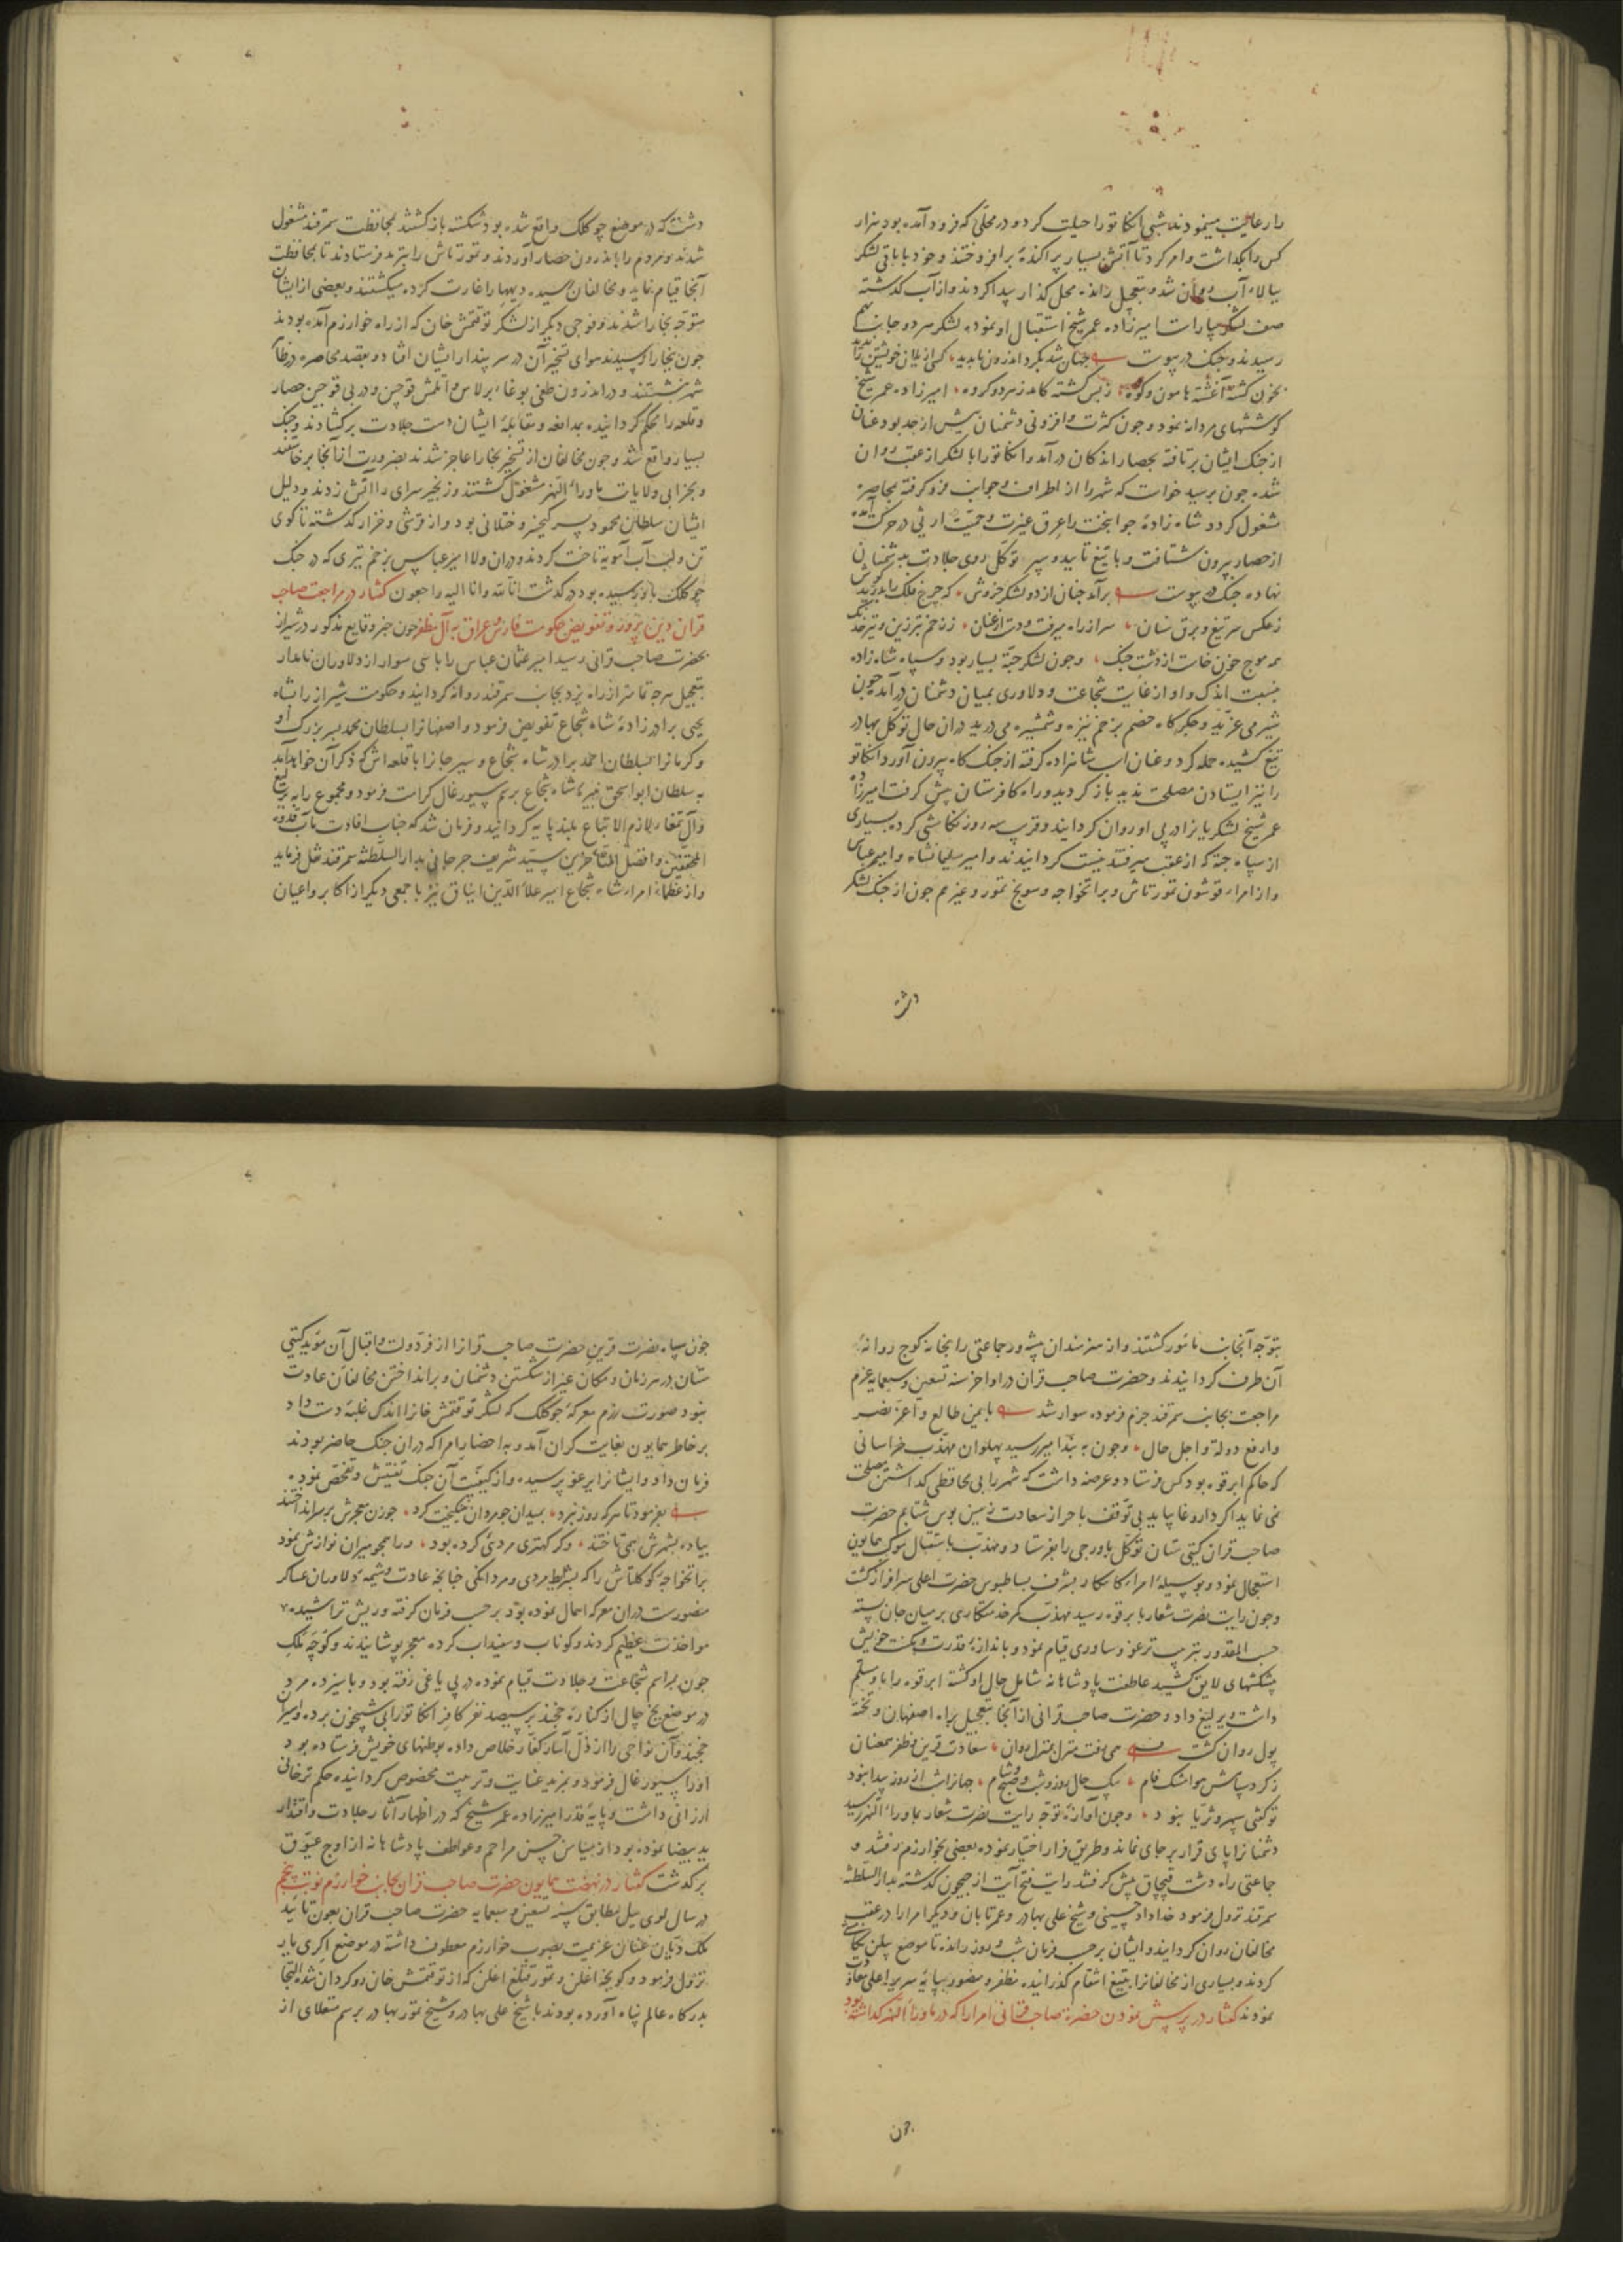 را رعایت مینمودند شبی انکا تورا حیلت کرد و در محلی که فرود آمده بود هزار
کس را بکذاشت و امر کرد تا آتش بسیار پراکنده برافروختند و خود با باقی لشکر
ببالاء آب روان شد و بتعجیل رانده محل کذار پیدا کردند و از آب کذشته
صف لشکر بیاراست امیرزاده عمر شیخ استقبال او نموده لشکر هر دو جانب بهم
رسیدند و جنک در پیوست جهان شد بکرد اندرون ناپدید کسی از یلان خویشتن را ندید
بخون کشته آغشته هامون و کوه ز بس کشته کامد ز هر دو کروه امیرزاده عمر شیخ
کوششهای مردانه نمود و چون کثرت و افزونی دشمنان بیش از حد بود عنان
از جنک ایشان برتافته بحصار اندکان درآمد و انکا تورا با لشکر از عقب روان
شد چون برسید خواست که شهر را از اطراف و جوانب فرو کرفته بمحاصره
مشغول کردد شاه زادهٔ جوانبخت را عرق غیرت و حمیت ارثی در حرکت آمده
از حصار بیرون شتافت و با تیغ تایید و سپر توکل روی جلادت بدشمنان
نهاده جنک در پیوست برآمد چنان از دو لشکر خروش که چرخ فلک را بدرید کوش
ز عکس سر تیغ و برق سنان سر از راه میرفت و دست از عنان ز زخم تبرزین و تیر خدنک
همه موج خون خاست از دشت جنک و چون لشکر جته بسیار بود و سپاه شاه زاده
بنسبت اندک و او از غایت شجاعت و دلاوری بمیان دشمنان درآمد چون
شیر می غرید و جکر کاه خصم بزخم نیزه و شمشیر می درید در ان حال توکل بهادر
تیغ کشیده حمله کرد و عنان اسب شاهزاده کرفته از جنک کاه بیرون آورد و انکا تو
را نیز ایستادن مصلحت ندید باز کردید و راه کافرستان پیش کرفت امیرزاده
عمر شیخ لشکریانرا در پی او روان کردانید و قرب سه روز تکامشی کرده بسیاری
از سپاه جته که از عقب میرفتند نیست کردانیدند و امیر سلیمانشاه و امیر عباس
و از امراء قوشون تمور تاش و براتخواجه و سونج تمور و غیرهم چون از جنک لشکر
دشت
دشت که در موضع جوکلک واقع شده بود شکسته باز کشتند بمحافظت سمرقند مشغول
شدند و مردم را باندرون حصار آوردند و تمور تاش را بترمد فرستادند تا بمحافظت
آنجا قیام نماید و مخالفان رسیده دیهها را غارت کرده میکشتند و بعضی از ایشان
متوجه بخارا شدند و فوجی دیکر از لشکر توقتمش خان که از راه خوارزم آمده بودند
چون ببخارا رسیدند هوای تسخیر آن در سر پندار ایشان افتاد و بقصد محاصره در ظاهر
شهر نشستند و در اندرون طغی بوغاء برلاس و اتلمش قوجین و دربی قوجین حصار
و قلعه را محکم کردانیده بمدافعه و مقابلهٔ ایشان دست جلادت برکشادند و جنک
بسیار واقع شد و چون مخالفان از تسخیر بخارا عاجز شدند بضرورت از آنجا برخاستند
و بخرابی ولایات ماوراء النهر مشغول کشتند و زنجیر سرای را آتش زدند و دلیل
ایشان سلطان محمود پسر کیخسرو ختلانی بود و از قرشی و خزار کذشته تا کوی
تن و لب آب آمویه تاخت کردند و در ان ولا امیر عباس بزخم تیری که در جنک
جوکلک باو رسیده بود در کذشت انا لله و انا الیه راجعون کفتار در مراجعت صاحب
قران دین پرور و تفویض حکومت فارس و عراق به آل مظفر چون خبر وقایع مذکور در شیراز
بحضرت صاحب قرانی رسید امیر عثمان عباس را با سی سوار از دلاوران نامدار
بتعجیل هرچه تمامتر از راه یزد بجانب سمرقند روانه کردانید و حکومت شیراز را بشاه
یحیی برادر زادهٔ شاه شجاع تفویض فرمود و اصفهانرا بسلطان محمد پسر بزرک او
و کرمانرا بسلطان احمد برادر شاه شجاع و سیرجانرا با قلعه اش که ذکر آن خواهد آمد
به سلطان ابو اسحق نبیرهٔ شاه شجاع برسم سیورغال کرامت فرمود و مجموع را به یرلیغ
و آل تمغا بلازم الاتباع بلند پایه کردانید و فرمان شد که جناب افادت مآب قدوه
المحققین و افضل المتاخرین سید شریف جرجانی بدار السلطنه سمرقند نقل فرماید
و از عظماء امراء شاه شجاع امیر علاء الدین ایناق نیز با جمعی دیکر از اکابر و اعیان
بتوجه آنجانب مامور کشتند و از هنرمندان پیشه ور جماعتی را بخانه کوچ روانهٔ
آن طرف کردانیدند و حضرت صاحب قران در اواخر سنه تسعین و سبعمایه عزم
مراجعت بجانب سمرقند جزم فرموده سوار شد بایمن طالع و اعز نصر
و ارفع دولة و اجل حال و چون به بند امیر رسید پهلوان مهذب خراسانی
که حاکم ابرقوه بود کس فرستاد و عرضه داشت که شهر را بی محافظی کذاشتن مصلحت
نمی نماید اکر داروغا بیاید بی توقف باحراز سعادت زمین بوس شتابم حضرت
صاحب قران کیتی ستان توکل باورجی را بفرستاد و مهذب باستقبال موکب همایون
استعجال نمود و بوسیلهٔ امراء کامکار بشرف بساطبوس حضرت اعلی سرافراز کشت
و چون رایت نصرت شعار بابرقوه رسید مهذب کمر خدمتکاری بر میان جان بسته
حسب المقدور بترتیب ترغو و ساوری قیام نمود و باندازهٔ قدرت و مکنت خویش
پیشکشهای لایق کشید عاطفت پادشاهانه شامل حال او کشته ابرقوه را باو مسلم
داشت و یرلیغ داد و حضرت صاحب قرانی از آنجا بتعجیل براه اصفهان و تخته
پول روان کشت همی رفت منزل بمنزل روان سعادت قرین و ظفر همعنان
ز کرد سپاهش هوا مشک فام بیک حال روز و شب و صبح و شام جهانرا شب از روز پیدا نبود
تو کفتی سپهر و ثریا نبود و چون آوازهٔ توجه رایت نصرت شعار بماوراء النهر رسید
دشمنانرا پای قرار بر جای نماند و طریق فرار اختیار نموده بعضی بخوارزم رفتند و
جماعتی راه دشت قپچاق پیش کرفتند رایت فتح آیت از جیحون کذشته بدار السلطنه
سمرقند نزول فرمود خداداد حسینی و شیخ علی بهادر و عمر تابان و دیکر امرا را در عقب
مخالفان روان کردانید و ایشان برحسب فرمان شب و روز رانده تا موضع پلن تکامشی
کردند و بسیاری از مخالفانرا بتیغ انتقام کذرانیده مظفر و منصور بپایهٔ سریر اعلی معاودت
نمودند کفتار در پرسش نمودن حضرة صاحب قرانی امرا را که در ماوراء النهر کذاشته بود
چون
چون سپاه نصرت قرین حضرت صاحب قرانرا از فر دولت و اقبال آن مؤید کیتی
ستان در هر زمان و مکان غیر از شکستن دشمنان و برانداختن مخالفان عادت
نبود صورت رزم معرکهٔ جوکلک که لشکر توقتمش خانرا اندک غلبهٔ دست داد
بر خاطر همایون بغایت کران آمد و به احضار امرا که در ان جنک حاضر بودند
فرمان داد و ایشانرا یرغو پرسیده و از کیفیت آن جنک تفتیش و تفحص نموده
بفرمود تا هرکه روز نبرد بمیدان جو مردان نجنکید کرد چو زن معجرش بر سر انداختند
پیاده بشهرش همی تاختند و کر کهتری مردیٔ کرده بود ورا همچو میران نوازش نمود
براتخواجه کوکلتاش را که بشرایط مردی و مردانکی چنانچه عادت و شیمهٔ دلاوران عساکر
منصورست در ان معرکه اهمال نموده بود برحسب فرمان کرفته و ریش تراشیده
مواخذت عظیم کردند و کوناب و سفیداب کرده معجر پوشانیدند و کوچه ملک
چون بمراسم شجاعت و جلادت قیام نموده در پی یاغی رفته بود و با سیزده مرد
در موضع یخ چال از کنارهٔ خجند بر سیصد نفر کافر انکا تورایی شبیخون برده و اسیران
خجند و آن نواحی را از ذل آسار کفار خلاص داده بوطنهای خویش فرستاده بود
او را سیورغال فرمود و بمزید عنایت و تربیت مخصوص کردانیده حکم ترخانی
ارزانی داشت و پایهٔ قدر امیرزاده عمر شیخ که در اظهار آثار جلادت و اقتدار
ید بیضا نموده بود از میامن حسن مراحم و عواطف پادشاهانه از اوج عیوق
برکذشت کفتار در نهضت همایون حضرت صاحب قران بجانب خوارزم نوبت پنجم
در سال لوی ییل مطابق سنه تسعین و سبعمایه حضرت صاحب قران بعون تایید
ملک دیان عنان عزیمت بصوب خوارزم معطوف داشته در موضع اکری یار
نزول فرمود و کونجه اغلن و تمور قتلغ اغلن که از توقتمش خان روکردان شده التجا
بدرکاه عالم پناه آورده بودند با شیخ علی بهادر و شیخ تمور بهادر برسم منقلای از